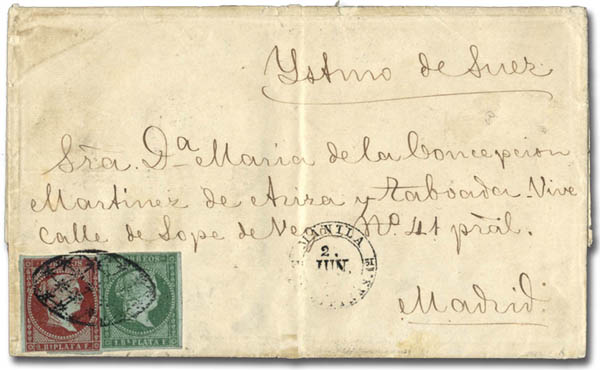 Ystmo de Suez
Sra. Dª Maria de la Concepcion
Martinez de Ariza y Taboada - Vive
calle de Lope de Vega Nº 41 pral.
Madrid.
MANILA
2.
JUN.
CORREOS
PLATA F.
CORREOS
1 Rl PLATA F.